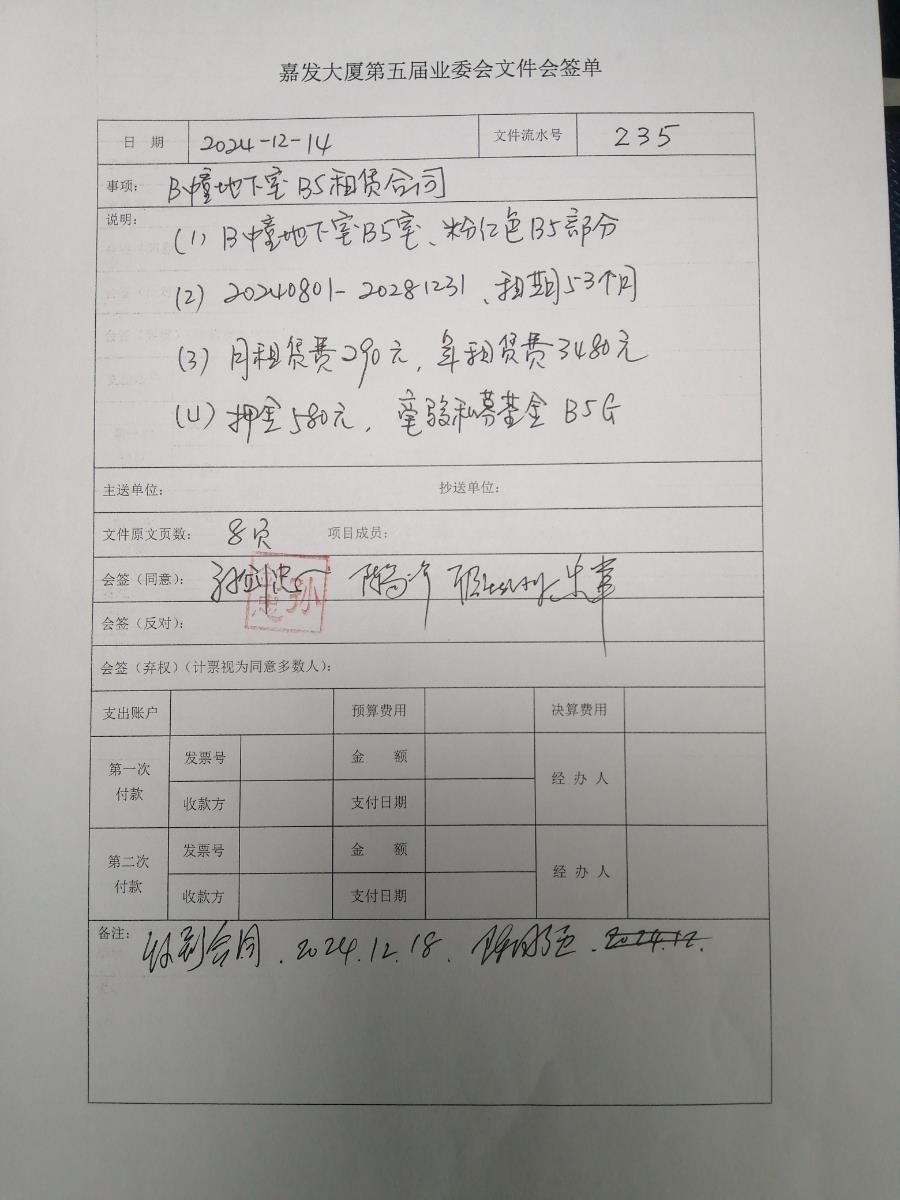 嘉发大厦第五届业委会文件会签单
日 期 2024-12-14 文件流水号 235
事项: B幢地下室B5租赁合同
说明: (1) B幢地下室B5室、粉红色B5部分
(2) 20240801-20281231、租期53个月
(3) 月租赁费290元,年租赁费3480元
(4) 押金580元, 毫骏私募基金 B5G
主送单位: 抄送单位:
文件原文页数: 8页 项目成员:
会签(同意):
孙
忠
会签(反对):
会签(弃权)(计票视为同意多数人):
支出账户 预算费用 决算费用
第一次付款 发票号 金 额 经 办 人
收款方 支付日期
第二次付款 发票号 金 额 经 办 人
收款方 支付日期
备注: 收到合同. 2024.12.18. 2024.12.